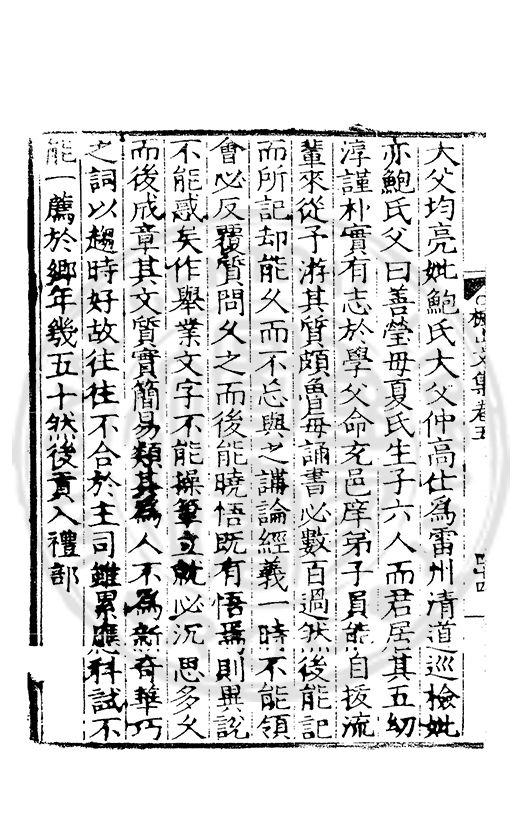 大父均亮妣鮑氏大父仲高仕爲雷州清道巡檢妣
亦鮑氏父曰善瑩毋夏氏生子六人而君居其五幼
淳謹朴實有志於學父命充邑庠弟子員能自拔流
輩來從予游其質頗魯毋誦書必數百過然後能記
而所記却能久而不忘與之講論經義一時不能領
會必反覆質問久之而後能曉悟既有悟焉則異說
不能惑矣作舉業文字不能操筆立就必沉思多久
而後成章其文質實簡易類其爲人不爲新奇華巧
之詞以趨時好故往往不合於主司雖累應科試不
能一薦於鄉年幾五十然後貢入禮部
文集卷五
四十四